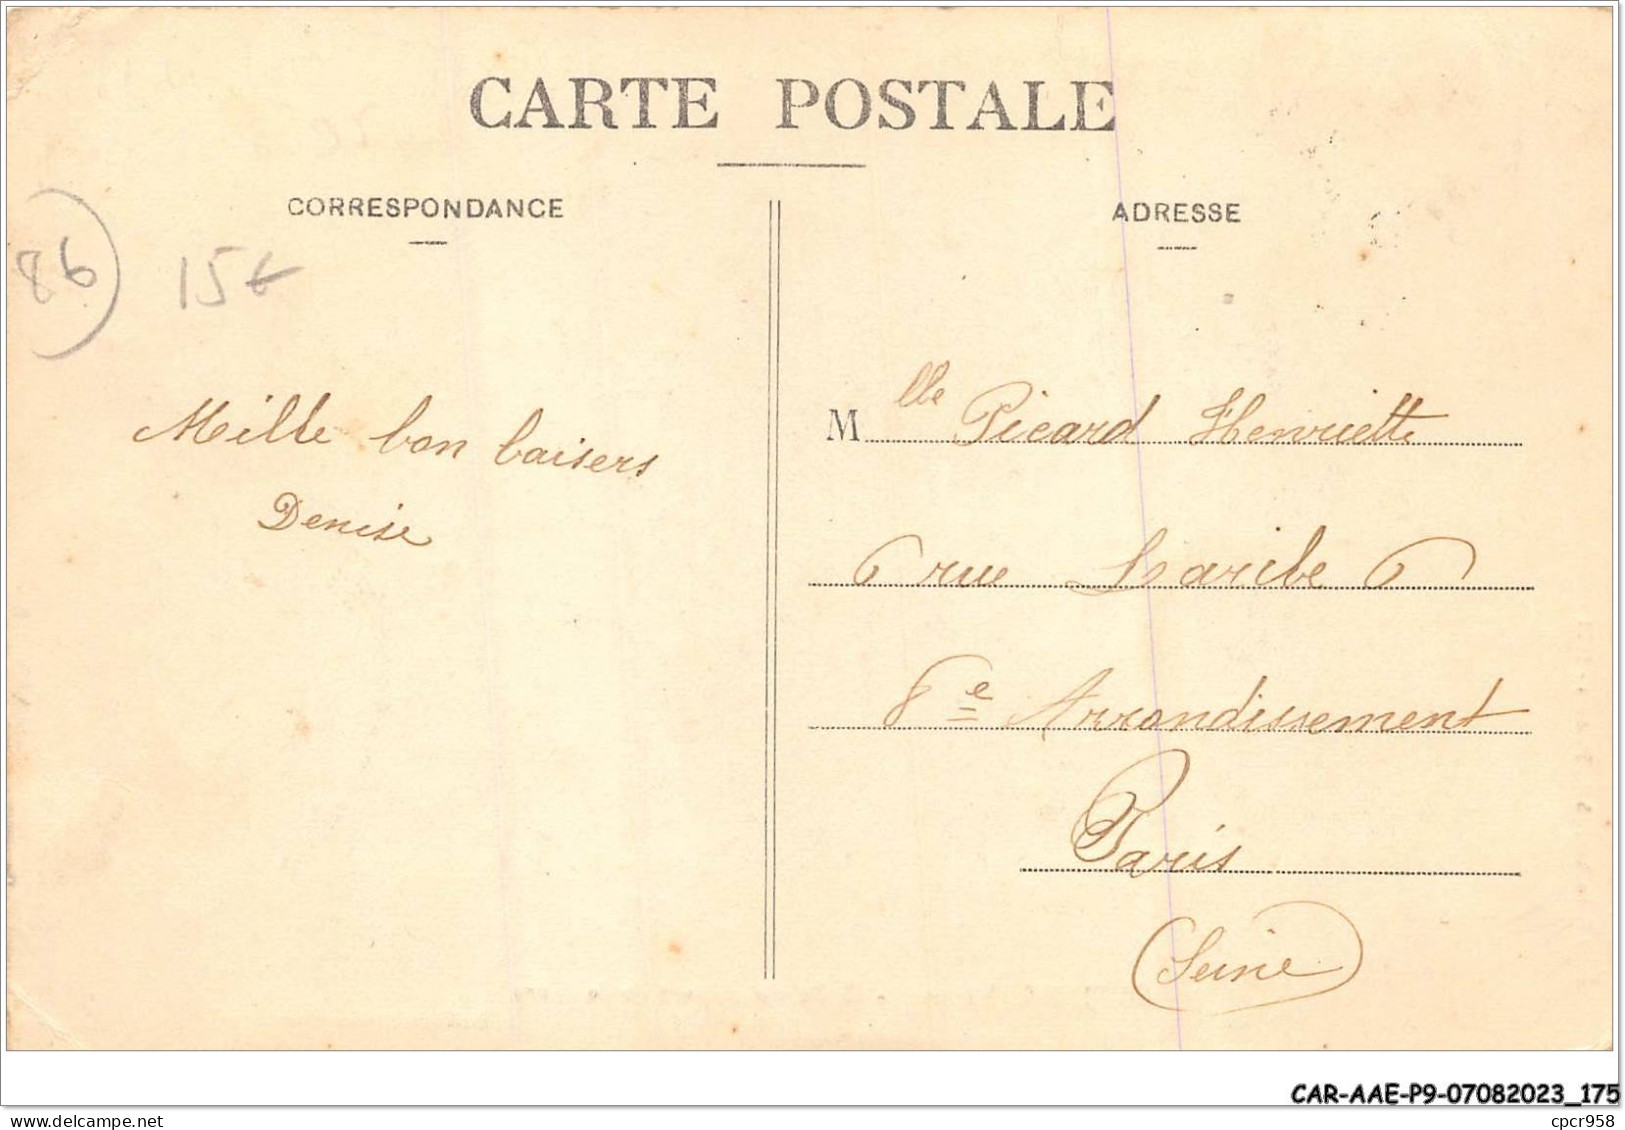 CARTE POSTALE
CORRESPONDANCE
ADRESSE
86
15€
Mille bon baisers
Denise
Mlle Picard Henriette
6 rue Laribe 6
8e Arrondissement
Paris
(Seine)
CAR-AAE-P9-07082023_175
www.delcampe.net
cpcr958